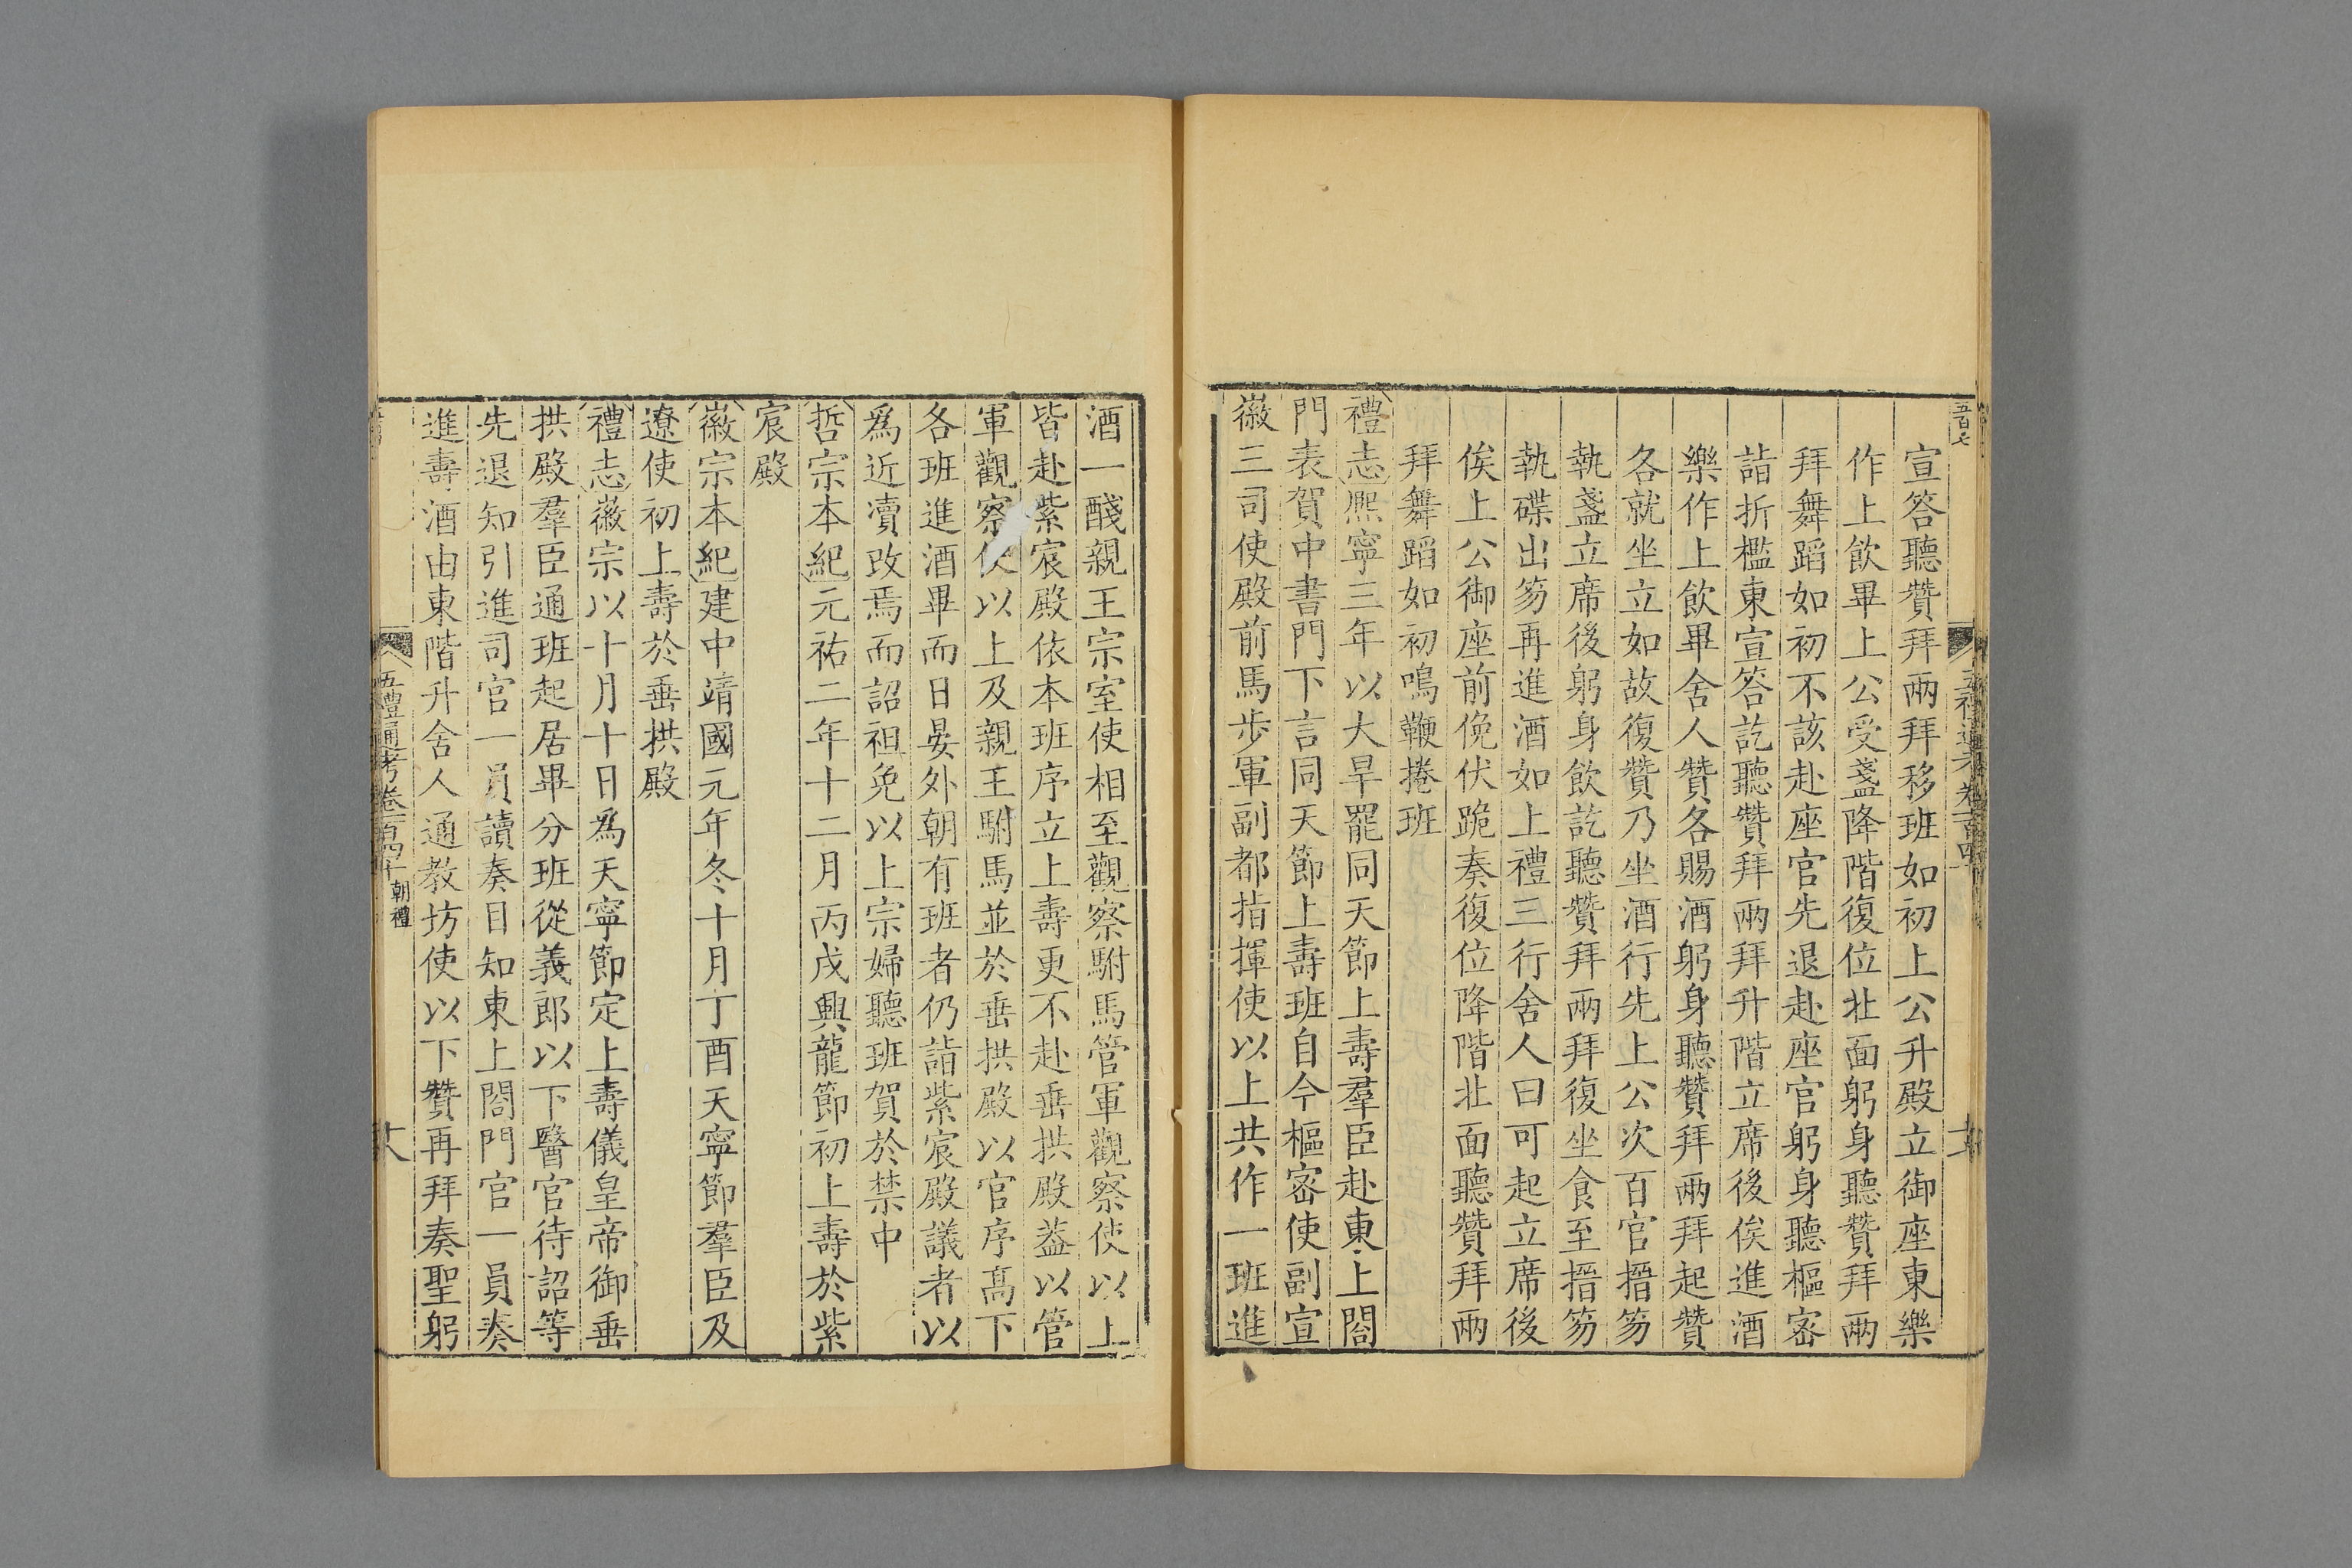 宣答聽贊拜兩拜移班如初上公升殿立御座東樂
作上飲畢上公受盞降階復位北面躬身聽贊拜兩
拜舞蹈如初不該赴座官先退赴座官躬身聽樞密
詣折檻東宣答訖聽贊拜兩拜升階立席後俟進酒
樂作上飲畢舍人贊各賜酒躬身聽贊拜兩拜起贊
各就坐立如故復贊乃坐酒行先上公次百官搢笏
執盞立席後躬身飲訖聽贊拜兩拜復坐食至搢笏
執碟出笏再進酒如上禮三行舍人曰可起立席後
俟上公御座前俛伏跪奏復位降階北面聽贊拜兩
拜舞蹈如初鳴鞭捲班
禮志熙寧三年以大旱罷同天節上壽羣臣赴東上閤
門表賀中書門下言同天節上壽班自今樞密使副宣
徽三司使殿前馬步軍副都指揮使以上共作一班進
酒一醆親王宗室使相至觀察駙馬管軍觀察使以上
皆赴紫宸殿依本班序立上壽更不赴垂拱殿葢以管
軍觀察使以上及親王駙馬並於垂拱殿以官序髙下
各班進酒畢而日晏外朝有班者仍詣紫宸殿議者以
爲近瀆改焉而詔袒免以上宗婦聽班賀於禁中
哲宗本紀元祐二年十二月丙戌興龍節初上壽於紫
宸殿
徽宗本紀建中靖國元年冬十月丁酉天寧節羣臣及
遼使初上壽於垂拱殿
禮志徽宗以十月十日爲天寧節定上壽儀皇帝御垂
拱殿羣臣通班起居畢分班從義郎以下醫官待詔等
先退知引進司官一員讀奏目知東上閤門官一員奏
進壽酒由東階升舍人通教坊使以下贊再拜奏聖躬
五禮通考卷一百四十朝禮